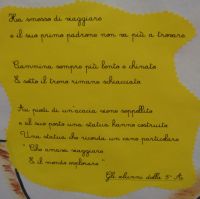 Ha smesso di viaggiare
e il suo primo padrone non va più a trovare
Cammina sempre più lento e chinato
E sotto il treno rimane schiacciato
Ai piedi di un'acacia viene seppellito
e al suo posto una statua hanno costruito
Una statua che ricorda un cane particolare
" Che amava viaggiare
E il mondo esplorare "
Gli alunni della 5ª A